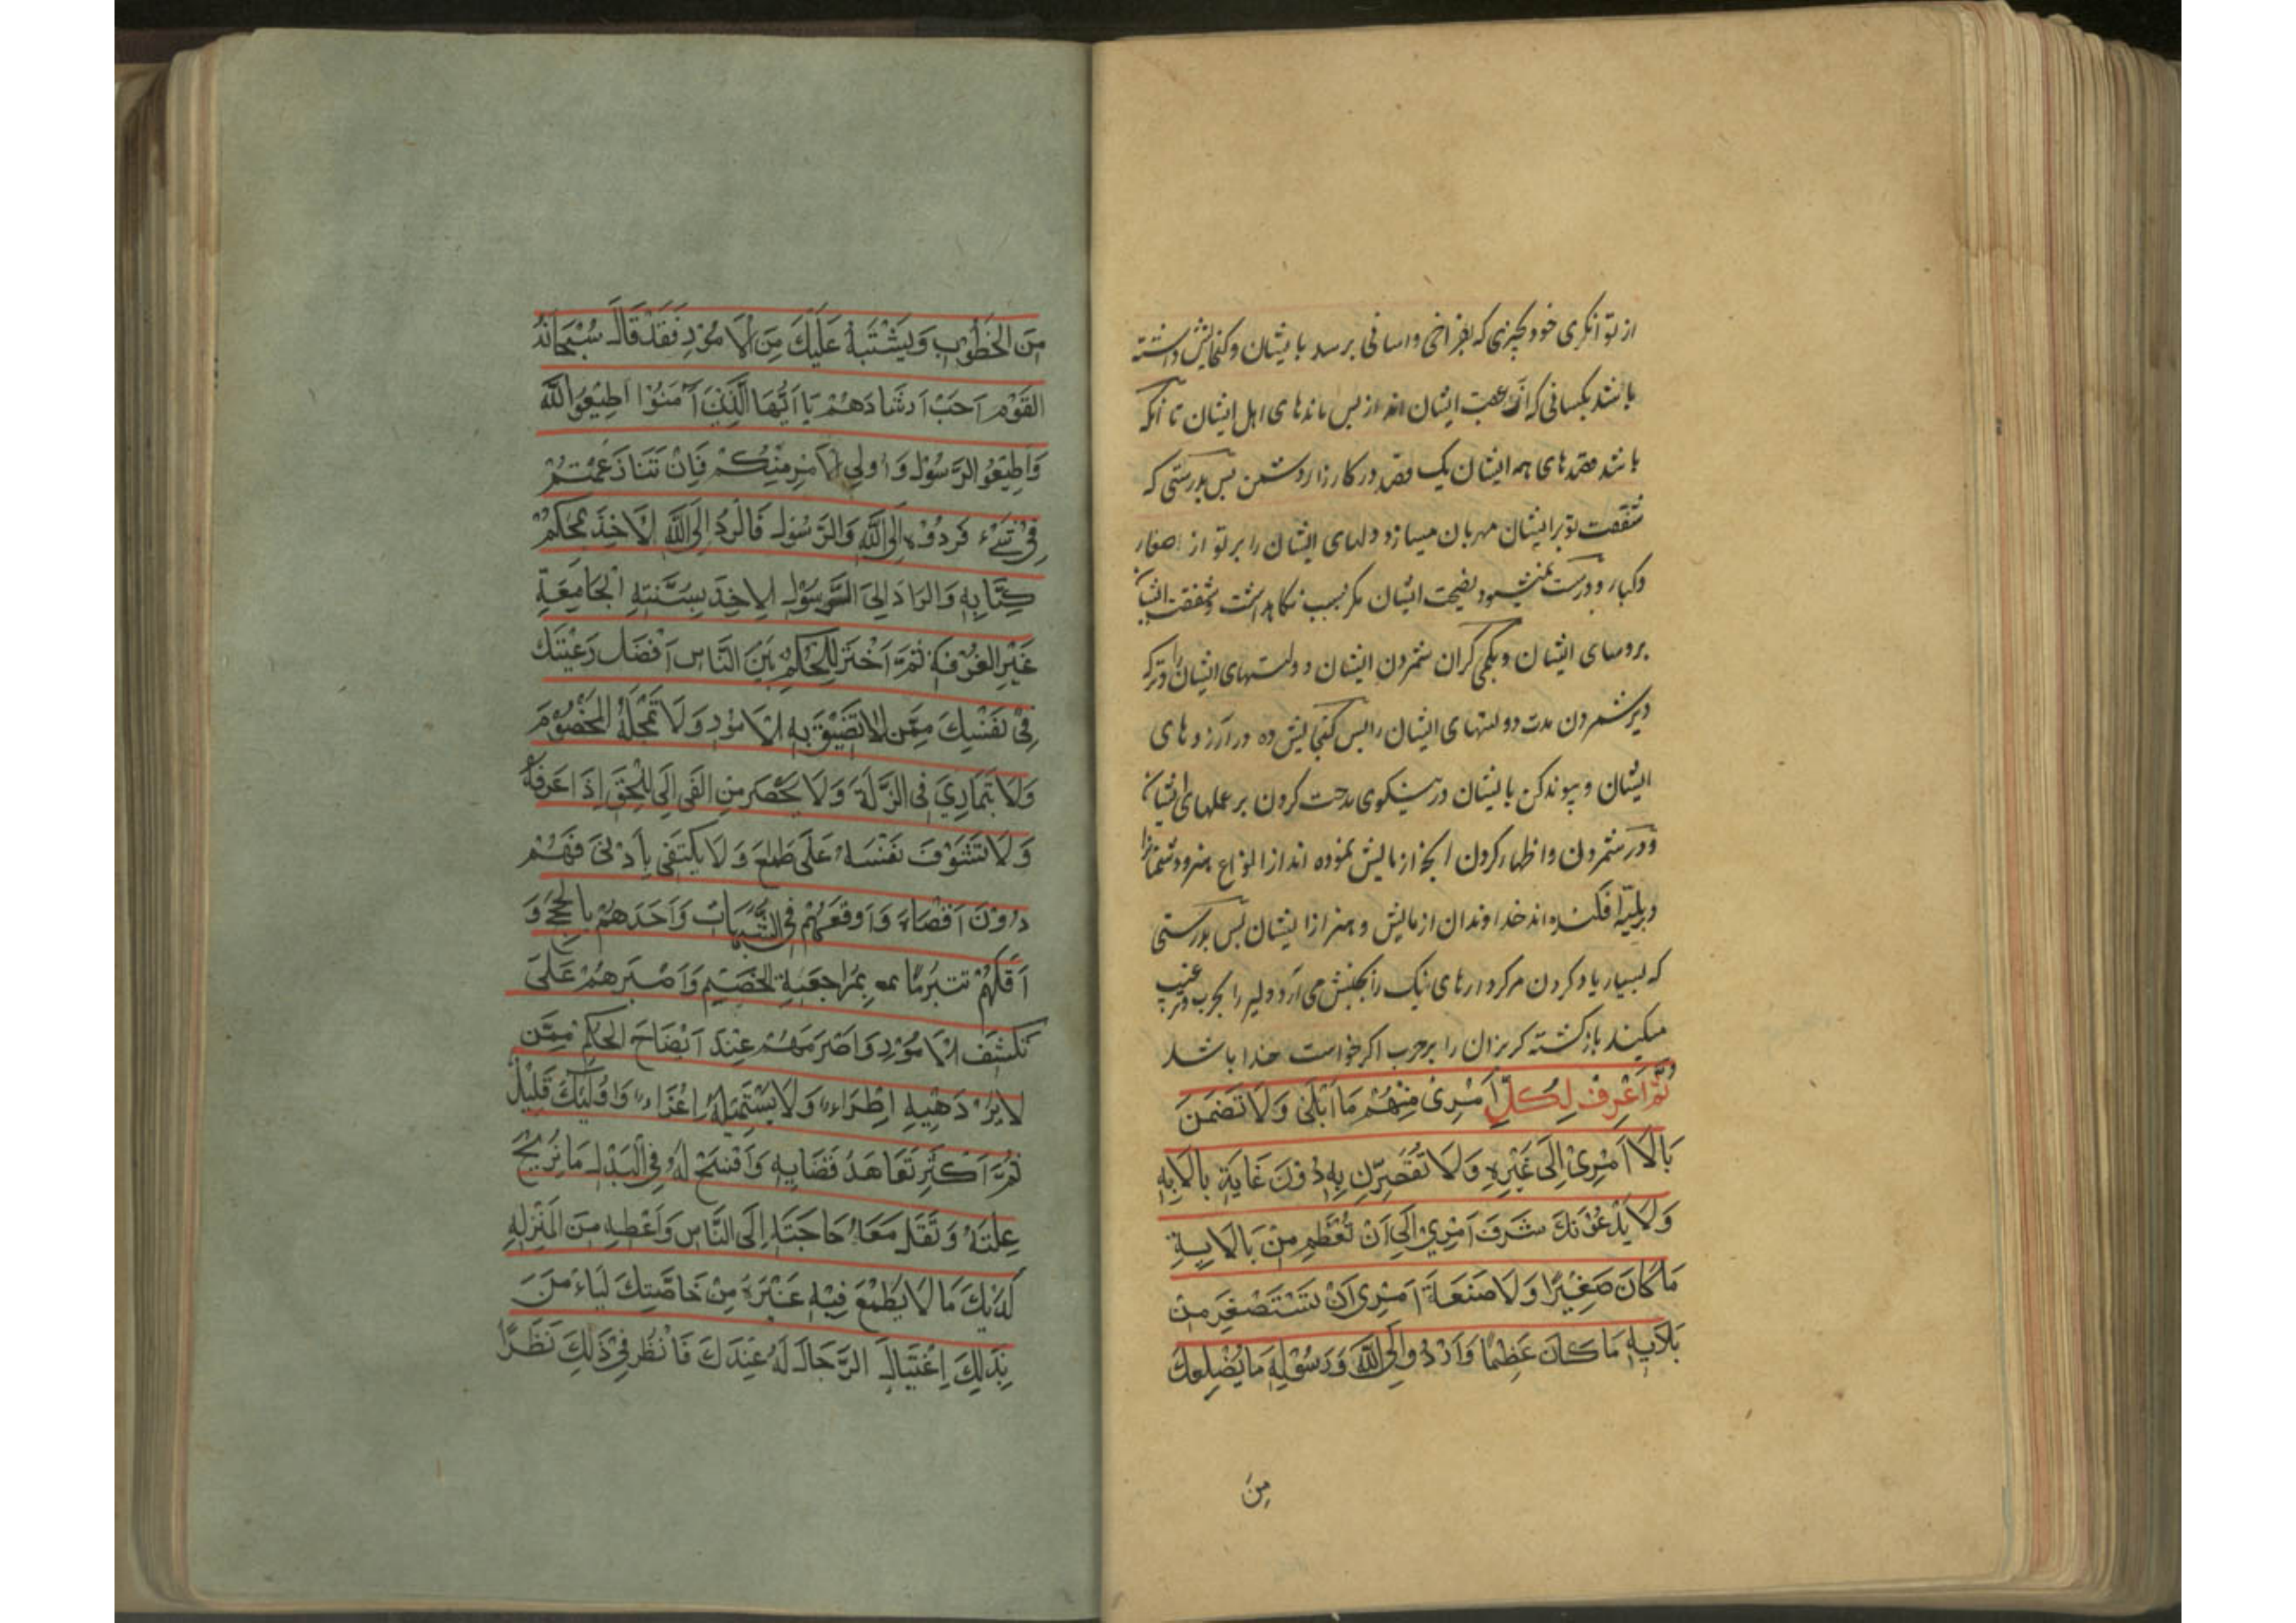 از توانکری خود بچیزی که بفراخی واسانی برسد بایشان وکنجایش داشته
باشد بکسانی که در عقب ایشان اند از پس ماندهای اهل ایشان تا آنکه
باشد قصدهای همه ایشان یک قصد در کارزار دشمن پس بدرستی که
شفقت تو برایشان مهربان میسازد دلهای ایشان را بر تو از صغار
وکبار ودرست نمیشود نصیحت ایشان مکر بسبب نکاهداشت وشفقت ایشان
بروسای ایشان وبکمی کران شمردن ایشان دولتهای ایشان را وترک
دیر شمردن مدت دولتهای ایشان را پس کنجایش ده در آرزوهای
ایشان وپیوند کن بایشان در نیکوی مدحت کردن بر عملهای ایشان
ودر شمردن واظهار کردن انچه ازمایش نموده اند از انواع هنر ودشمنان را
وببلیّه افکنده اند خداوندان ازمایش وهنر از ایشان پس بدرستی
که بسیار یاد کردن مر کردارهای نیک را بجنبش می آرد دلیر را بحرب وترغیب
میکند بازکشته کریزان را بر حرب اکر خواست خدا باشد
ثُمَّ اَعْرِفْ لِكُلِّ اَمْرِئٍ مِنْهُمْ مَا اَبْلٰى وَلَا تَضْمَنَ
بَالَاَ اَمْرِئٍ اِلَى غَيْرِهِ وَلَا تُقَصِّرَنَّ بِهِ دُوْنَ غَايَةِ بَالَابِهِ
وَلَا يَدْعُوْنَكَ شَرَفَ اَمْرِيٍ اِلَى اَنْ تُعَظِّمَ مِنْ بَالَايِهِ
مَا كَانَ صَغِيْرًا وَلَا صَنَعَةَ اَمْرِئٍ اَنْ تَسْتَصْغِرَ مِنْ
بَلَايِهِ مَا كَانَ عَظِيْمًا وَارْدُدْ اِلَى اللّٰهِ وَرَسُوْلِهِ مَا يُضْلِعُكَ
مِنَ
مِنَ الْخُطُوْبِ وَيَشْتَبِهُ عَلَيْكَ مِنَ الْاَمُوْرِ فَقَدْ قَالَ سُبْحَانَهُ
لقَوْمٍ اَحَبَّ اِرْشَادَهُمْ يَا اَيُّهَا الَّذِيْنَ آمَنُوْا اَطِيْعُوا اللّٰهَ
وَاَطِيْعُوا الرَّسُوْلَ وَاُولِي الْاَمْرِ مِنْكُمْ فَاِنْ تَنَازَعْتُمْ
فِيْ شَيْءٍ فَرُدُّوْهُ اِلَى اللّٰهِ وَالرَّسُوْلِ فَالرَّدُّ اِلَى اللّٰهِ الْاَخِذُ بِمُحْكَمِ
كِتَابِهِ وَالرَادُ اِلَى الرَّسُوْلِ الاخِذُ بِسُنَّتِهِ الْجَامِعَةِ
غَيْرِ الفُرْقَةِ ثُمَّ اَخْتَرْ لِلْحُكْمِ بَيْنَ النَّاسِ اَفْضَلَ رَعِيَّتِكَ
فِيْ نَفْسِكَ مِمَّنْ لَا تَضِيْقُ بِهِ الْاَمُوْرُ وَلَا تَمْحَكُهُ الْخُصُوْمُ
وَلَا يَتَمَادِيْ فِي الزَّلَّةِ وَلَا يَحْصَرُ مِنَ الفَئِ اِلَى الْحَقِّ اِذَا عَرَفَهُ
وَلَا تَشْوَفُ نَفْسَهُ عَلَى طَمَعٍ وَلَا يَكْتَفِي بِاَدْنٰى فَهْمٍ
دُوْنَ اَقْصَاهُ وَاَوْقَعَهُمْ فِي الشُّبُهَاتِ وَاَخَذَهُمْ بِالْحُجَجِ وَ
اَقَلَّهُمْ تَبَرُّمًا بِمُرَاجَعَةِ الْخَصِيْمِ وَاَصْبَرَهُمْ عَلَى
تَكَشُّفِ الْاَمُوْرِ وَاَصْرَمَهُمْ عِنْدَ اَتِّضَاحِ الْحُكْمِ مِمَّنْ
لَا يَزْدَهِيْهِ اِطْرَاءٌ وَلَا يَسْتَمِيْلُهُ اِغْرَاءٌ وَاوُلٰئِكَ قَلِيْلٌ
ثُمَّ اَكْثِرْ تَعَاهُدَ قَضَايِهِ وَاَفْسَحْ لَهُ فِي الْبَذْلِ مَا يُزِيْحُ
عِلَّتَهُ وَتَقِلُّ مَعَهُ حَاجَتَهُ اِلَى النَّاسِ وَاَعْطِهِ مِنَ الْمَنْزِلَهِ
لَدَيْكَ مَا لَا يَطْمَعُ فِيْهِ غَيْرَهُ مِنْ خَاصَّتِكَ لِيَاءْمَنَ
بِذَلِكَ اِغْتِيَالَ الرِّجَالِ لَهُ عِنْدَكَ فَاَنْظُرْ فِيْ ذَلِكَ نَظَرًا